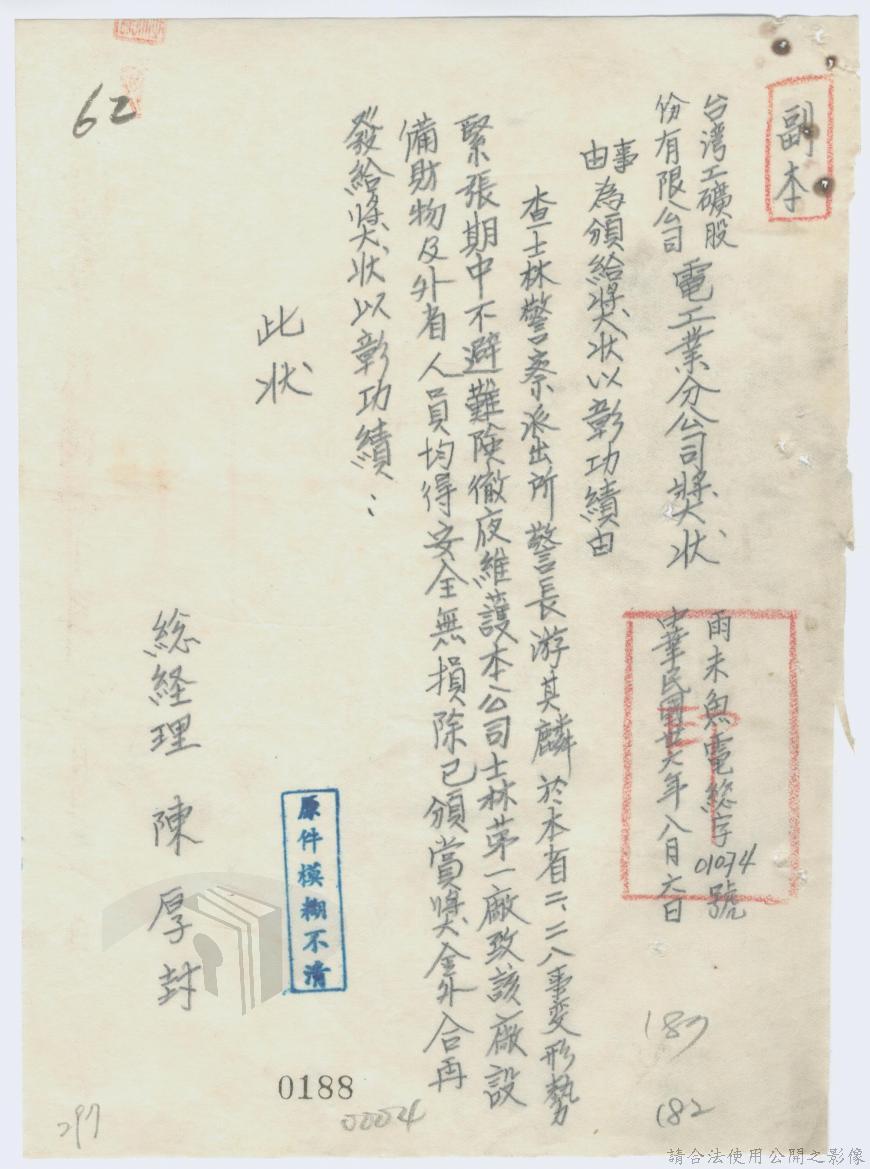 副本
台湾工礦股
份有限公司
電工業分公司獎状
雨未魚電総字01074號
中華民國廿六年八月六日
印
事由
為頒給獎状以彰功績由
查士林警察派出所警長游其麟於本省二、二八事変形勢
緊張期中不避難険徹夜維護本公司士林第一廠致該廠設
備財物及外省人員均得安全無損除已頒賞獎金外合再
發給獎状以彰功績：
此状
総経理 陳厚封
原件模糊不清
62
0188
0004
187
182
297
請合法使用公開之影像